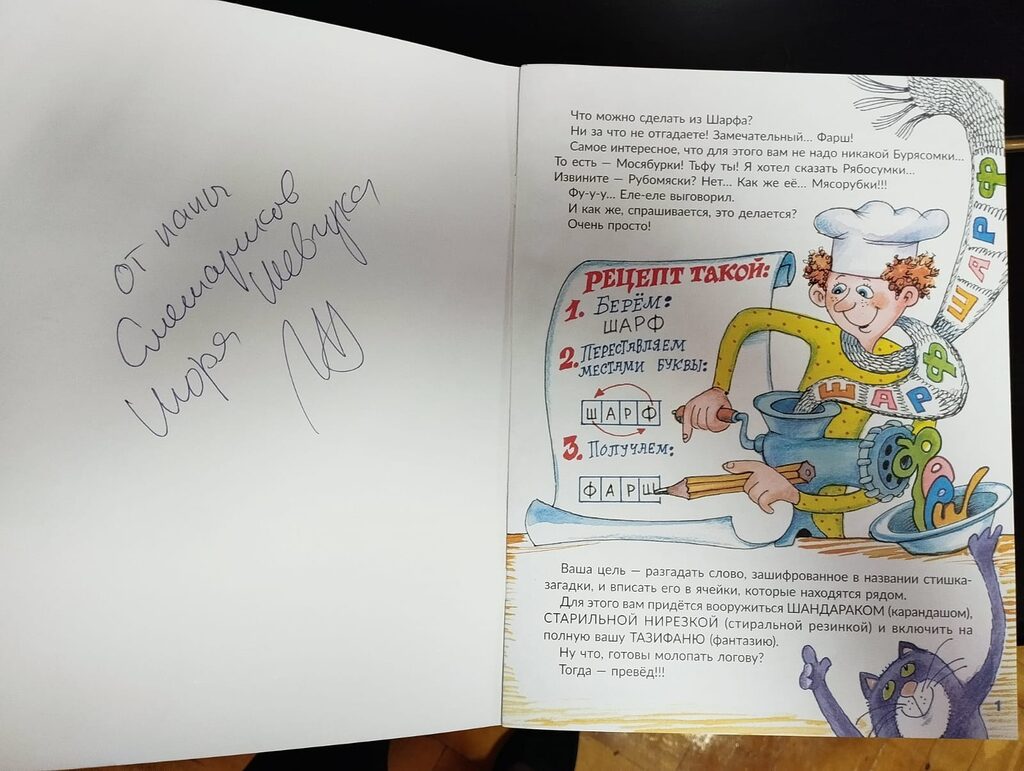 от папы
Смешариков
Игоря Шевчука,
Что можно сделать из Шарфа?
Ни за что не отгадаете! Замечательный... Фарш!
Самое интересное, что для этого вам не надо никакой Бурясомки...
То есть — Мосябурки! Тьфу ты! Я хотел сказать Рябосумки...
Извините — Рубомяски? Нет... Как же её... Мясорубки!!!
Фу-у-у... Еле-еле выговорил.
И как же, спрашивается, это делается?
Очень просто!
РЕЦЕПТ ТАКОЙ:
1. БЕРЁМ:
ШАРФ
2. ПЕРЕСТАВЛЯЕМ
МЕСТАМИ БУКВЫ:
ШАРФ
3. ПОЛУЧАЕМ:
ФАРШ
ШАРФ
ШАРФ
ФАРШ
Ваша цель — разгадать слово, зашифрованное в названии стишка-
загадки, и вписать его в ячейки, которые находятся рядом.
Для этого вам придётся вооружиться ШАНДАРАКОМ (карандашом),
СТАРИЛЬНОЙ НИРЕЗКОЙ (стиральной резинкой) и включить на
полную вашу ТАЗИФАНЮ (фантазию).
Ну что, готовы молопать логову?
Тогда — превёд!!!
1